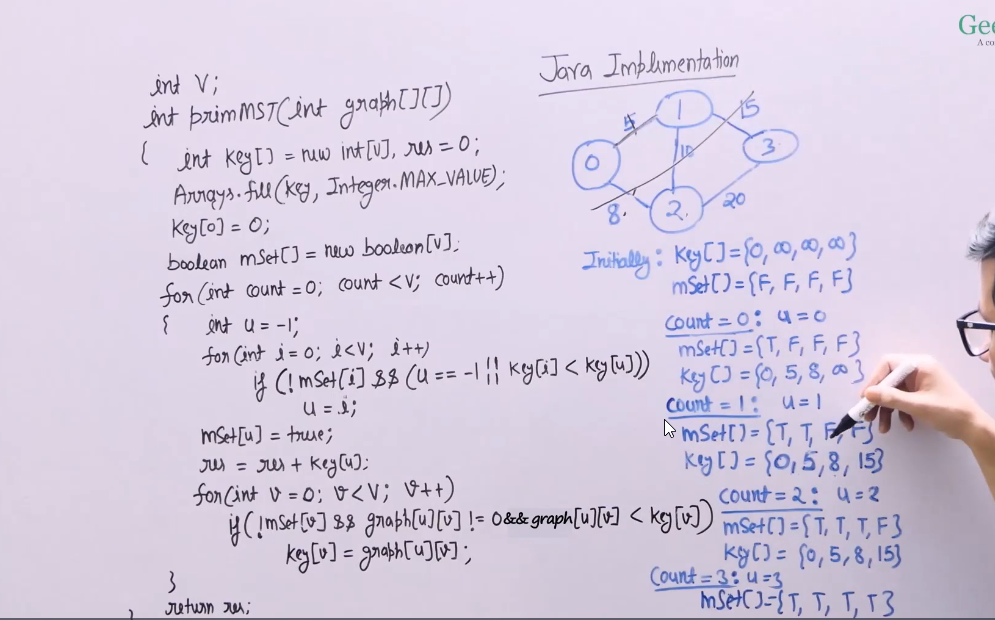 Gee
A co
Java Implementation
int V;
int primMST(int graph[][])
{ int key[] = new int[V], res = 0;
Arrays.fill(key, Integer.MAX_VALUE);
key[0] = 0;
boolean mSet[] = new boolean[V];
for(int count = 0; count < V; count++)
{ int u = -1;
for(int i = 0; i < V; i++)
if (!mSet[i] && (u == -1 || key[i] < key[u]))
u = i;
mSet[u] = true;
res = res + key[u];
for(int v = 0; v < V; v++)
if(!mSet[v] && graph[u][v] != 0 && graph[u][v] < key[v])
key[v] = graph[u][v];
}
return res;
1
5
15
0
10
3
8
2
20
Initially: key[] = {0, ∞, ∞, ∞}
mSet[] = {F, F, F, F}
count = 0: u = 0
mSet[] = {T, F, F, F}
key[] = {0, 5, 8, ∞}
count = 1: u = 1
mSet[] = {T, T, F, F}
key[] = {0, 5, 8, 15}
count = 2: u = 2
mSet[] = {T, T, T, F}
key[] = {0, 5, 8, 15}
count = 3: u = 3
mSet[] = {T, T, T, T}